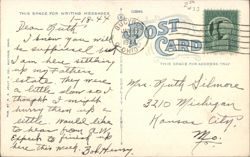 THIS SPACE FOR WRITING MESSAGES
1-18-44
Dear Ruth
I know you will
be surprised but
I am here settling
up my Fathers
estate. They were
a little slow so I
thought I might
hurry them up a
little. Would like
to hear from you.
Expect to finish
here this week.
Bob Henry
POST
CARD
THIS SPACE FOR ADDRESS ONLY
Mrs. Ruth Gilmore
3210 Michigan
Kansas City
Mo.